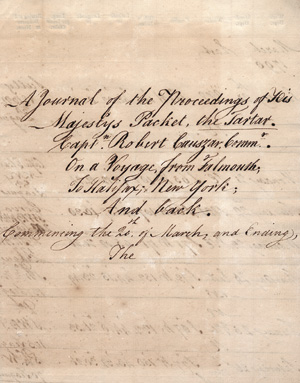 A Journal of the Proceedings of His
Majestys Packet, the Tartar.
Captn. Robert Comm.r
On a Voyage, from Falmouth,
To Halifax, New York,
And back.
Commencing the of March, and Ending,
The